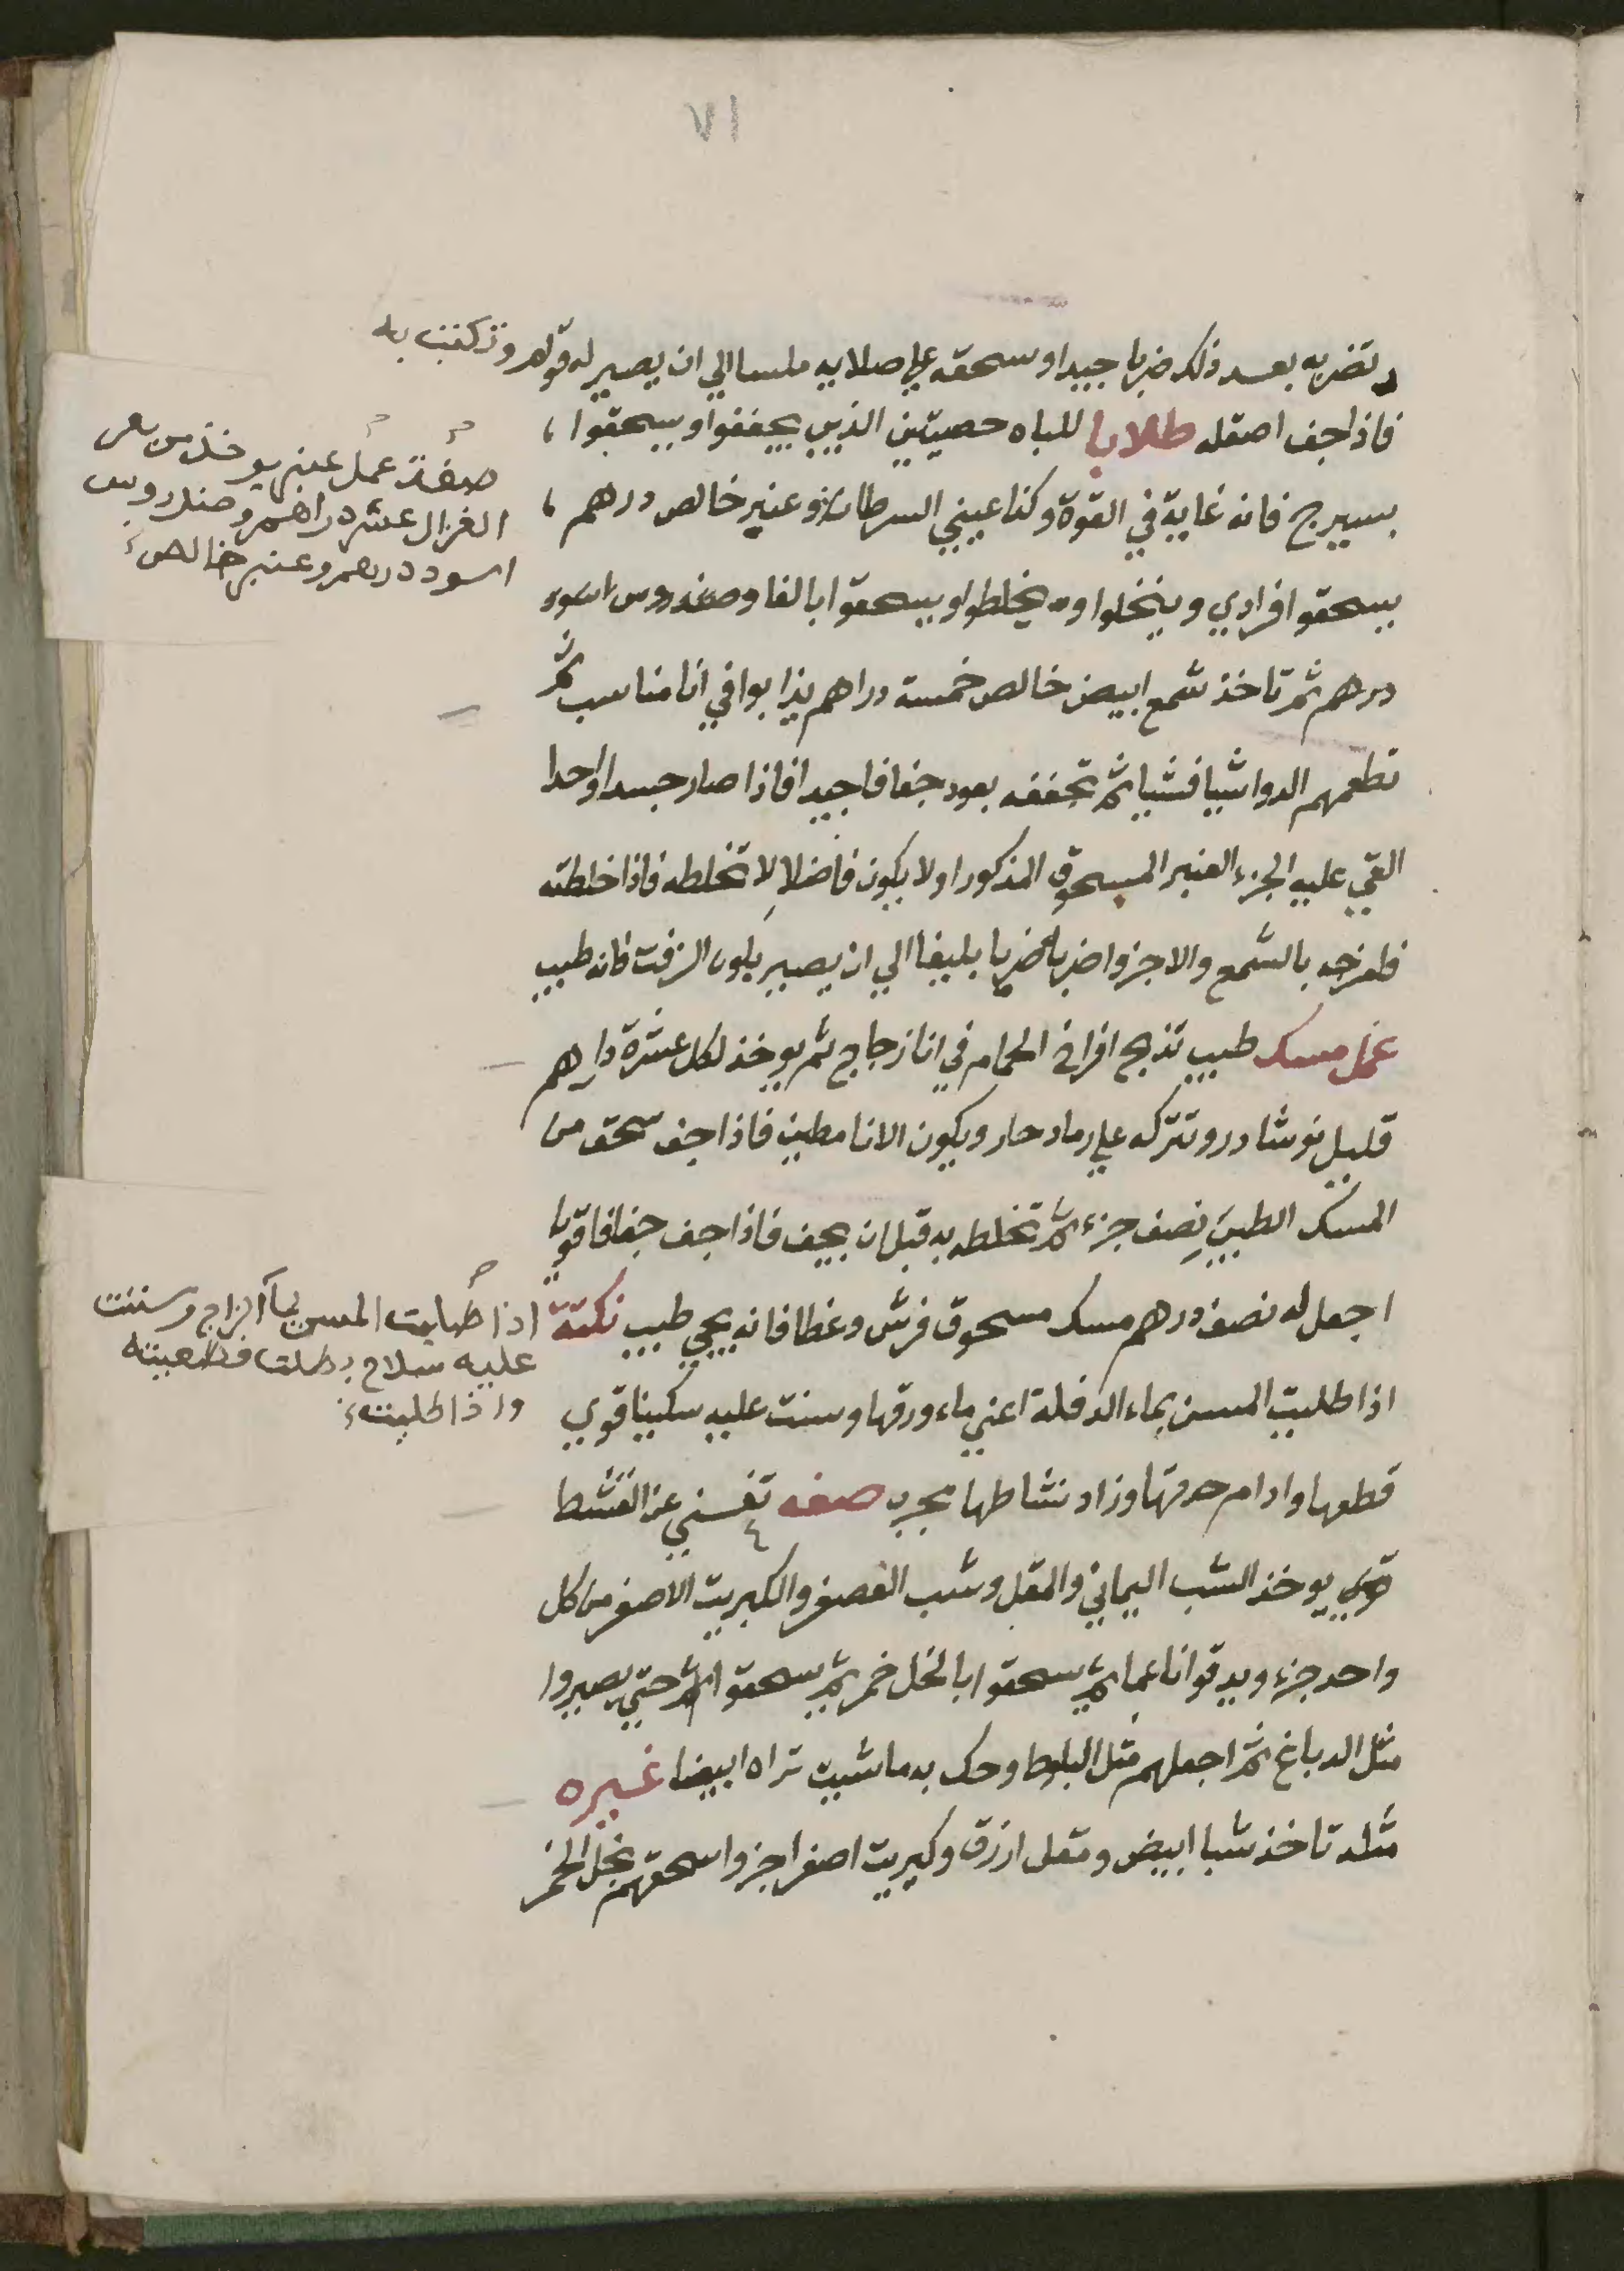 ٧١
وتضربه بعد ذلك ضربا جيدا وسحقه علي صلايه ملسا الي ان يصير له قوام وتركتب به
فاذا جف اصقله طلايا للباه حصيتين الديب يجففوا ويسحقوا
بسيرج فانه غاية في القوة وكذا عيني السرطان وعنبر خالص درهم
يسحقوا فرادي وينخلوا و يخلطوا ويسحقوا بالغا وصندروس اسود
درهم ثم تاخذ شمع ابيض خالص خمسة دراهم يذابوا في انا مناسب ثم
تطعمهم الدوا شيا فشيا ثم تجففه بعود جفافا جيدا فاذا صار جسدا واحدا
القي عليه الجزء العنبر المسحوق المذكور اولا يكون فاضلا لا تخلطه فاذا خلطته
فامزجه بالشمع والاجزوا ضربا بليغا الي ان يصير بلون الزفت فانه طيب
عمل مسك طيب تذبح افراخ الحمام في انا زجاج ثم يوخذ لكل عشرة دراهم
قليل نوشادر وتتركه علي رماد حار ويكون الانا مطين فاذا جف سحق من
المسك الطيب نصف جزء ثم تخلطه به قبل ان يجف فاذا جف جفافا قويا
اجعل له نصف درهم مسك مسحوق فرش وغطا فانه يجي طيب نكتة
اذا طليت المسن بماء الدفلة اعني ماء ورقها وسنت عليه سكينا قوي
قطعها وادام حرقتها وزاد نشاطها مجرب صفه تغني عن القشط
قوي يوخذ الشب اليماني والمقل وشب العصفر والكبريت الاصفر من كل
واحد جزء ويدقوا ناعما ثم يسحقوا بالخل خمر ثم يسحقوا حتي يصيروا
مثل الدباغ ثم اجعلهم مثل البلوط وحك به ما شيت تراه ابيضا غيره
مثله تاخذ شبا ابيض ومقل ازرق وكبريت اصفر اجزوا اسحقهم بخل الخمر
صفة عمل عنبر يوخذ من بعر
الغزال عشر دراهم وصندروس
اسود درهم وعنبر خالص
اذا طليت المسن بمآ الزاج وسننت
عليه سلاح بطلت قطعيته
واذا طليته